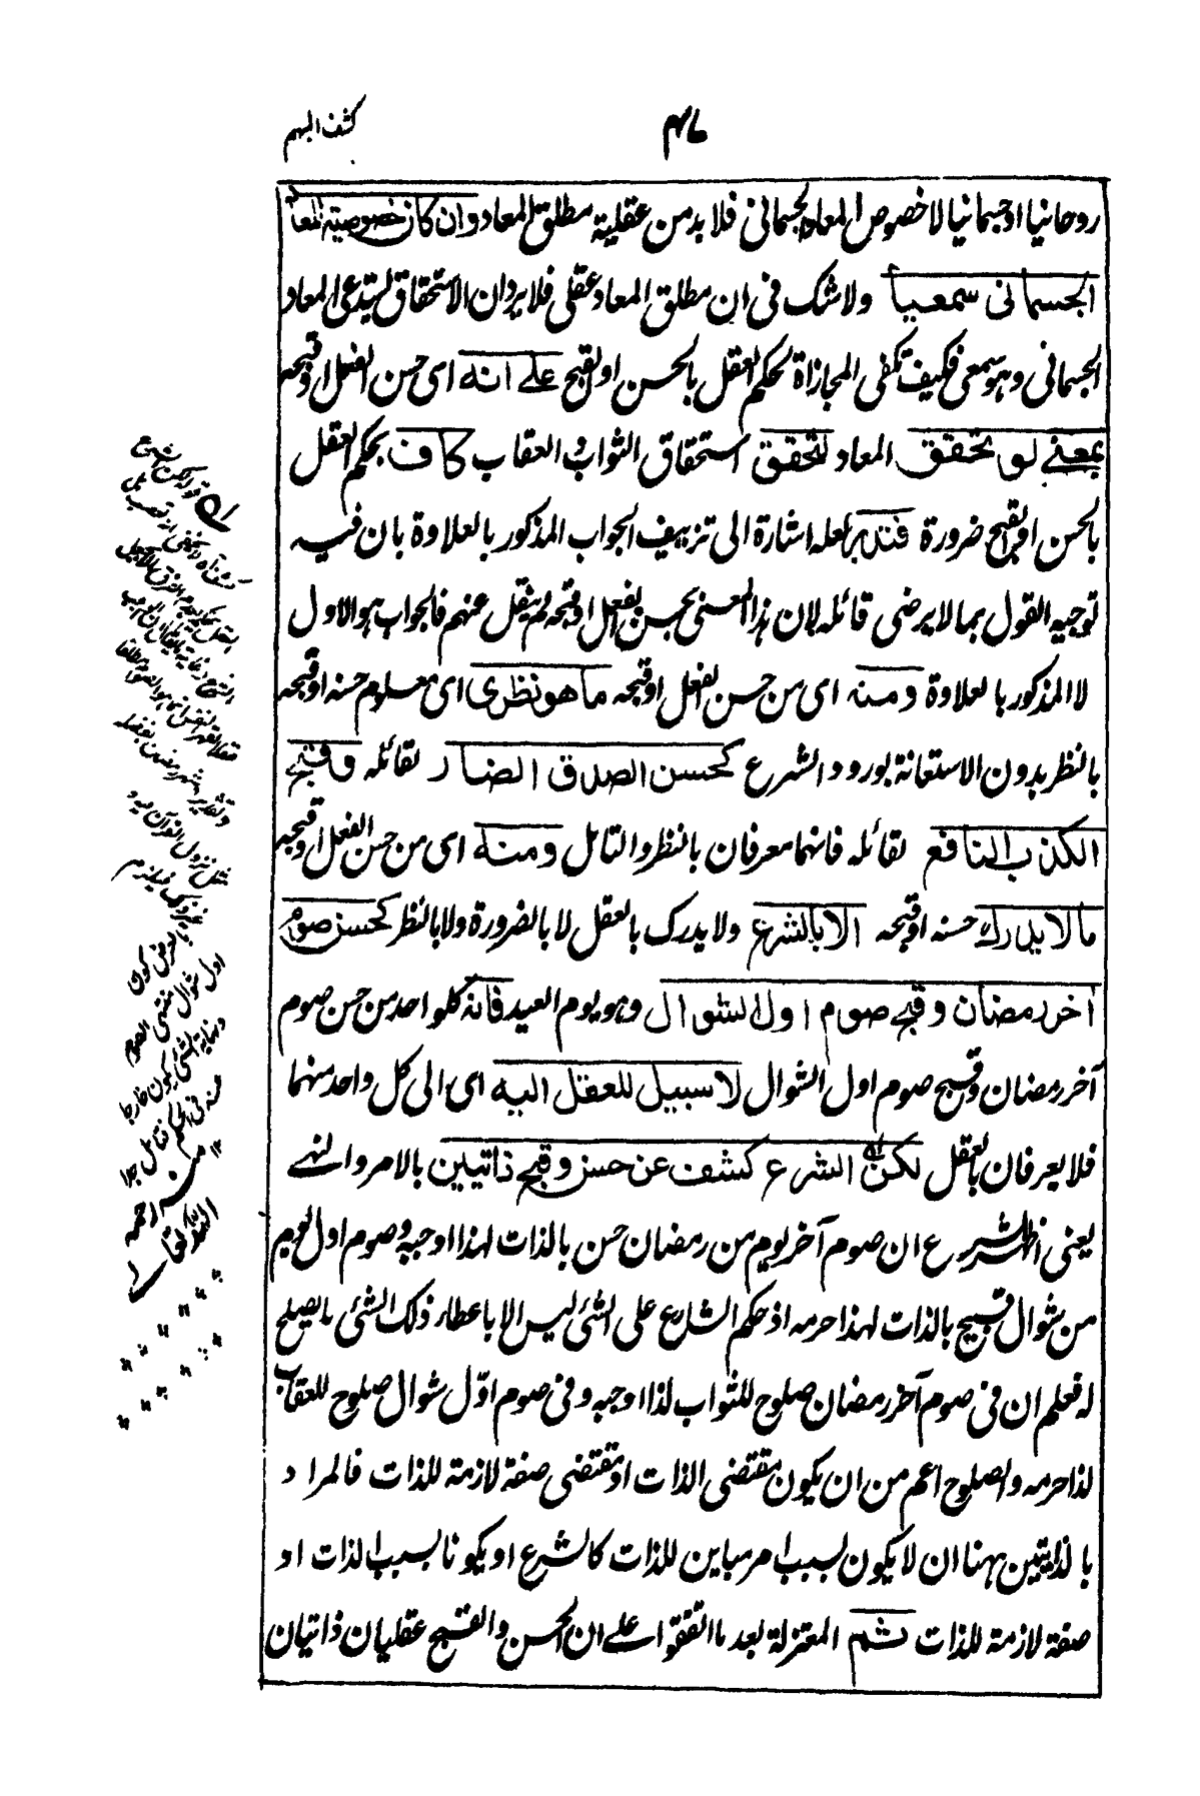 كشف المبهم
٤٧
روحانيا او جسمانيا لا خصوص المعاد الجسماني فلابد من عقلية مطلق المعاد وان كان خصوصية المعاد
الجسماني سمعيا ولا شك في ان مطلق المعاد عقلي فلا يرد ان الاستحقاق يستدعى المعاد
الجسماني وهو سمعي فكيف تكفى المجازاة لحكم العقل بالحسن او القبح على انه اى حسن الفعل او قبحه
بمعنى لو تحقق المعاد لتحقق استحقاق الثواب والعقاب كاف بحكم العقل
بالحسن او القبح ضرورة فتدبر لعله اشارة الى تزييف الجواب المذكور بالعلاوة بان فيه
توجيه القول بما لا يرضى قائله لان هذا المعنى بحسن الفعل او قبحه لم ينقل عنهم فالجواب هو الاول
لا المذكور بالعلاوة ومنه اى من حسن الفعل او قبحه ما هو نظرى اى معلوم حسنه او قبحه
بالنظر بدون الاستعانة بورود الشرع كحسن الصدق الضار لقائله وقبح
الكذب النافع لقائله فانهما معرفان بالنظر والتامل ومنه اى من حسن الفعل او قبحه
ما لا يدرك حسنه او قبحه الا بالشرع ولا يدرك بالعقل لا بالضرورة ولا بالنظر كحسن صوم
آخر رمضان وقبح صوم اول الشوال وهو يوم العيد فانه كلو احد من حسن صوم
آخر رمضان وقبح صوم اول الشوال لا سبيل للعقل اليه اى الى كل واحد منهما
فلا يعرفان بالعقل لكن الشرع كشف عن حسن وقبح ذاتيين بالامر والنهي
يعنى اظهر الشرع ان صوم آخر يوم من رمضان حسن بالذات لهذا اوجبه وصوم اول اليوم
من شوال قبيح بالذات لهذا حرمه اذ حكم الشارع على الشئ ليس الا باعطاء ذلك الشئ ما يصلح
له فعلم ان في صوم آخر رمضان صلوح للثواب لذا اوجبه وفي صوم اوّل شوال صلوح للعقاب
لذا حرمه والصلوح اعم من ان يكون مقتضى الذات او مقتضى صفة لازمة للذات فالمراد
بالذاتيين ههنا ان لا يكون لسبب امر مباين للذات كالشرع او يكونا لسبب الذات او
صفة لازمة للذات ثم المعتزلة بعد ما اتفقوا على ان الحسن والقبح عقليان ذاتيان
قوله لكن الشرع
اول شوال منتهى الصوم
ونهاية الشئ يكون خارجا
عنه في الحكم فتامل جدا
منه رحمه
الله تعالى